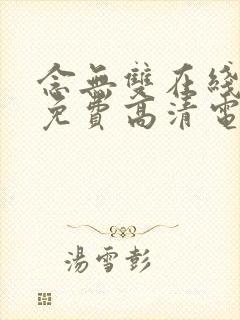 念無雙在綫
免費高清電
湯雪彭